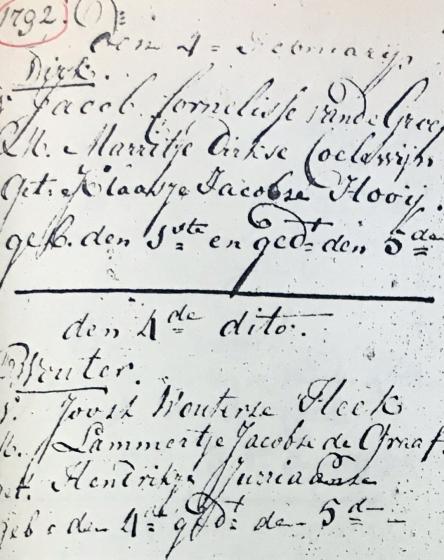 1792.
den 4 = Februarij
Dirk.
V. Jacob Cornelisse van de Groe
M. Marritje Dirkse Coelewijn
Get: Klaasje Jacobse Hooij
geb. den 1ste en gedt den 5de
den 4de dito.
Wouter.
V. Joost Wouterse Heek
M. Lammertje Jacobse de Graaf
Get. Hendrikje Jurriaanse
geb: den 4de gedt den 5d